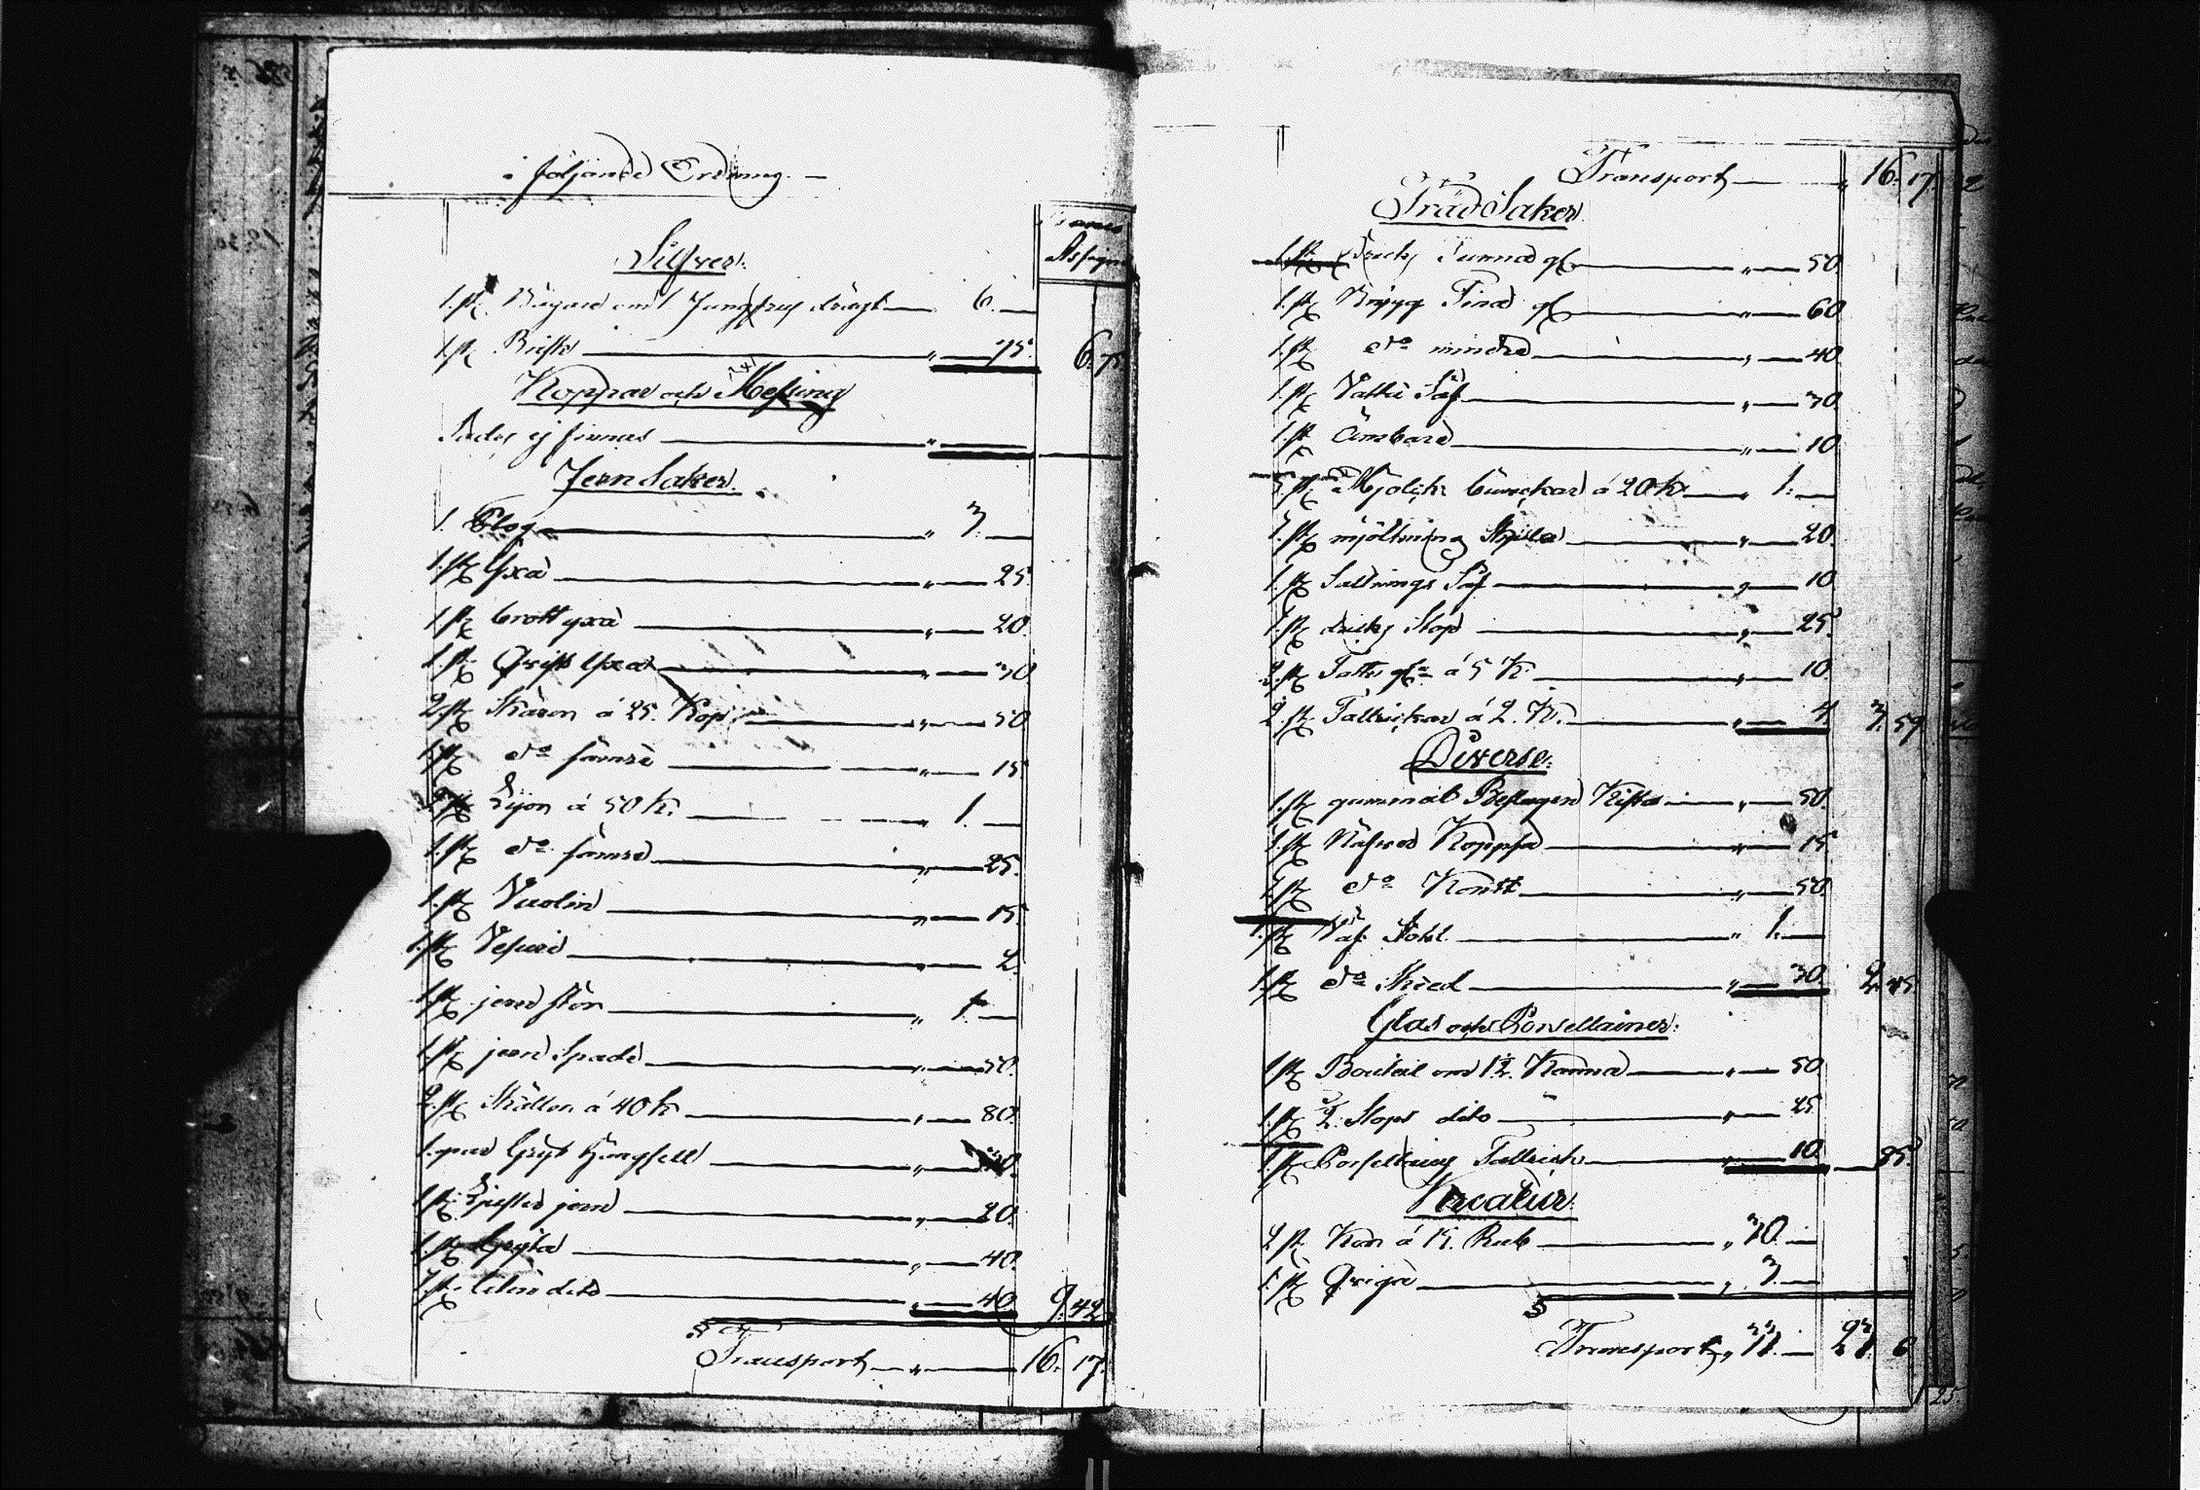 i följande Ordning.
Banco
Assign
Silfver.
1. st. Bägare om 1 Jungfrus drägt 6.
1. st. Brisk " 75. 6. 75.
Koppar och Messing
Sådes ej finnes "
Jern Saker.
1. Plog " 3.
1. st. Yxa " 25.
1. st. brott yxa " 20.
1. st. yxa " 30
2 st. Skäror á 25. Kop. " 50
1. st. do sämre " 15
2 st. Lijor á 50 k. " 1.
1. st. do sämre " 25.
1. st. Vuolin " 15
1. st. Vesuri " 2.
1. st. jern stör " 1.
1. st. jern Spade " 50.
2. st. Skällor á 40 k. " 80.
1. par Gryt "
1. st. jern " 20.
1. st. Gryta " 40.
1. st. liten dito " 40. 9. 42
Transport " 16. 17.
Transport " 16. 17.
Träd Saker.
1. st. Dricks Tunna gl. " 50.
1. st. Brygg Tina gl. " 60
1. st. do mindre " 40.
1. st. Vattu Så " 30.
1. st. Ämbare " 10
5. st. Mjölk bunckar á 20 k. " 1.
1. st. mjöltning Skjula " 20.
1. st. Saltnings Så " 10
1. st. dricks Stop " 25.
2. st. Fatt gla á 5 K. " 10.
2. st. Tallrickar á 2. K. " 4. 3. 59
Diverse.
1. st. gammal Beslagen Kista " 50.
1. st. Näfver Koppa " 15
1. st. do Kont " 50.
1. st. Väf Stohl " 1.
1. st. do Sked " 30. 2. 45.
Glas och Porsellainer.
1. st. Bouteil om 1½ Kanna " 50
1. st. 2. Stops dito " 25
1. st. Porsellains Tallrick " 10. 85.
Kreatur.
2 st. Kor á 15. Rub " 30.
1. st. Qviga " 3.
Transport " 33. 23 6